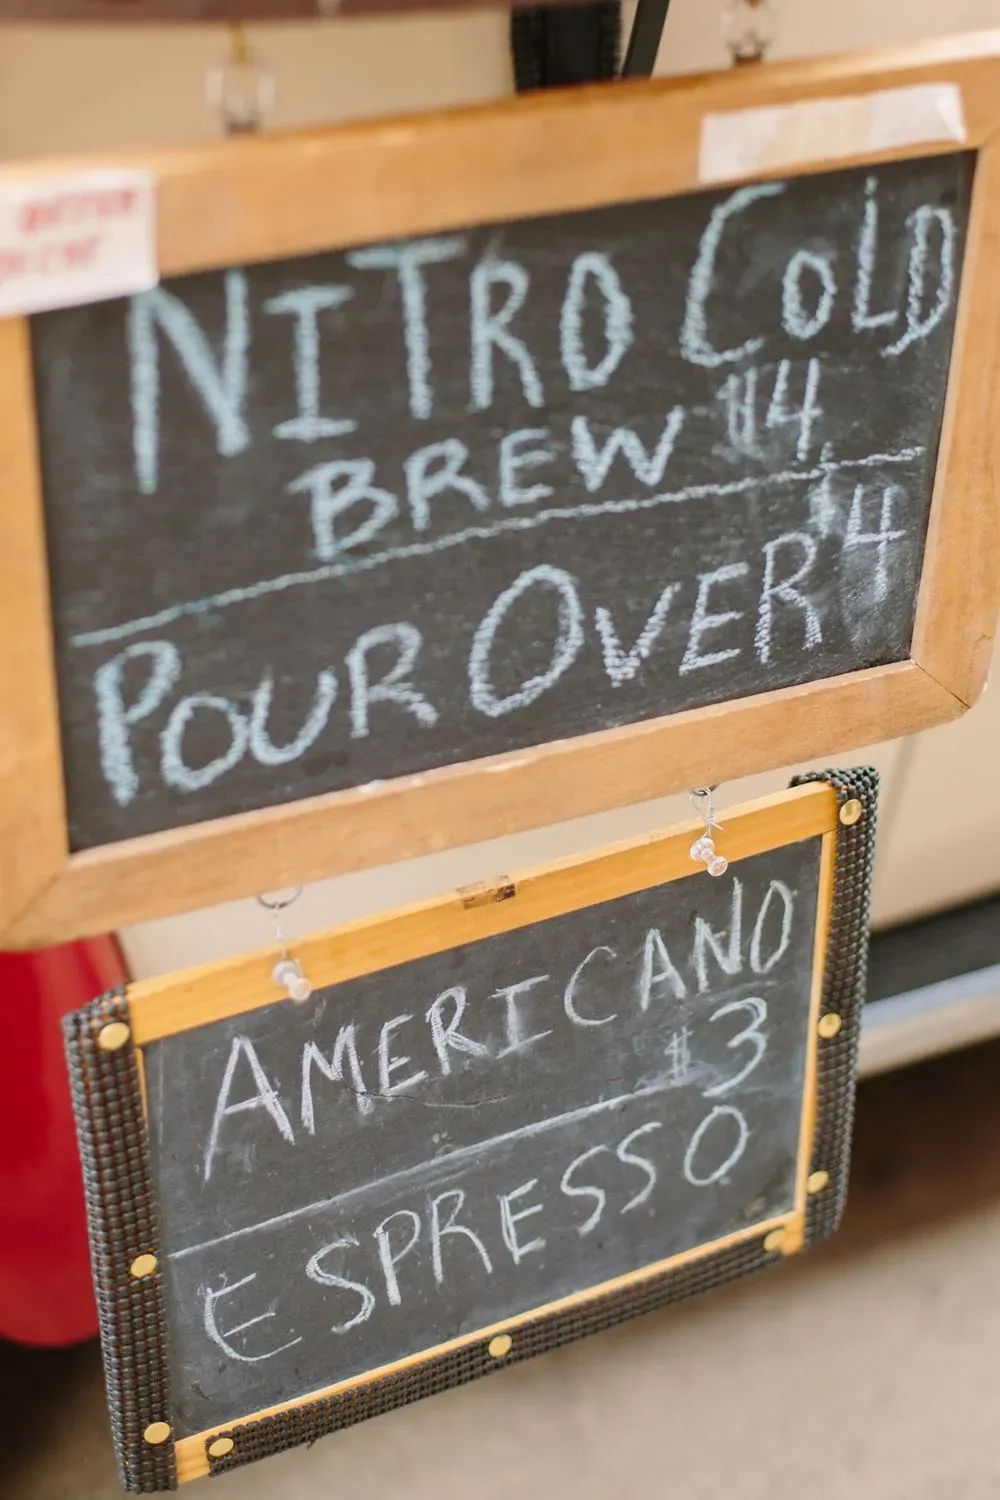 NITRO COLD
BREW $4
POUR OVER $4
AMERICANO
$3
ESPRESSO